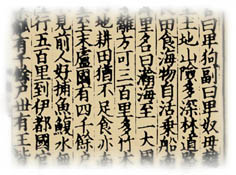 曰卑狗副曰卑奴母
土地山險多深林道
田食海物自活乗船
里名曰瀚海至一大
離方可三百里多竹
地耕田猶不足食亦
至末盧國有四千餘
見前人好捕魚鰒水
行五百里到伊都國
有千餘戸世有王